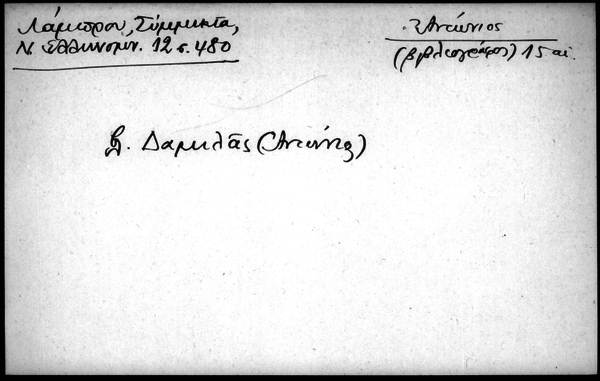 Λάμπρου, Σύμμικτα,
Ν. Ἑλληνομν. 12 σ. 480
Ἀντώνιος
(βιβλιογράφος) 15 αἰ.
βλ. Δαμιλᾶς (Ἀντώνιος)